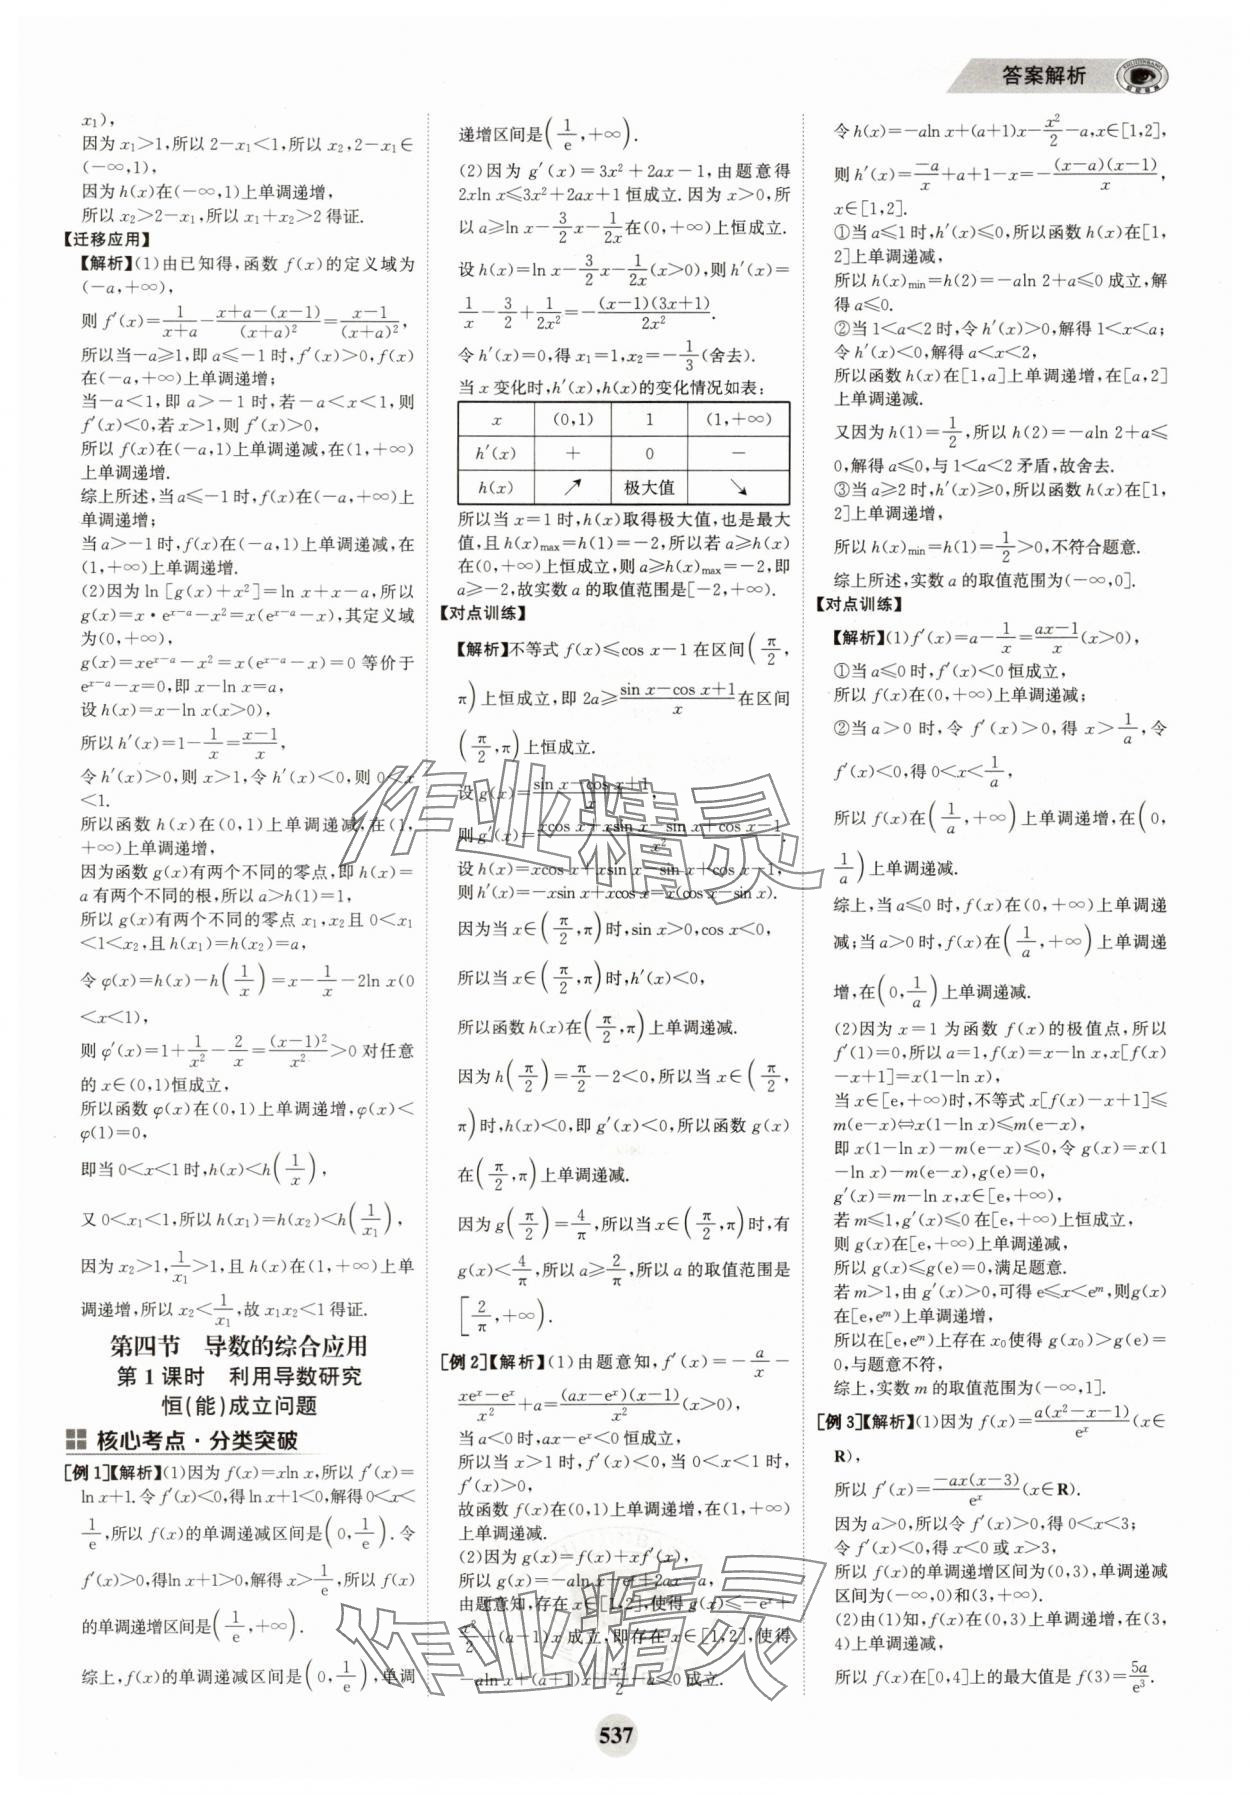 答案解析
x₁),
因为 x₁>1,所以 2-x₁<1,所以 x₂,2-x₁∈
(-∞,1),
因为 h(x)在(-∞,1)上单调递增,
所以 x₂>2-x₁,所以 x₁+x₂>2 得证.
【迁移应用】
【解析】(1)由已知得,函数 f(x)的定义域为
(-a,+∞),
则 f′(x)=1/(x+a)-(x+a-(x-1))/(x+a)²=(x-1)/(x+a)²,
所以当-a≥1,即 a≤-1 时,f′(x)>0,f(x)
在(-a,+∞)上单调递增;
当-a<1,即 a>-1 时,若-a<x<1,则
f′(x)<0,若 x>1,则 f′(x)>0,
所以 f(x)在(-a,1)上单调递减,在(1,+∞)
上单调递增.
综上所述,当 a≤-1 时,f(x)在(-a,+∞)上
单调递增;
当 a>-1 时,f(x)在(-a,1)上单调递减,在
(1,+∞)上单调递增.
(2)因为 ln[g(x)+x²]=ln x+x-a,所以
g(x)=x·eˣ⁻ᵃ-x²=x(eˣ⁻ᵃ-x),其定义域
为(0,+∞),
g(x)=xeˣ⁻ᵃ-x²=x(eˣ⁻ᵃ-x)=0 等价于
eˣ⁻ᵃ-x=0,即 x-ln x=a,
设 h(x)=x-ln x(x>0),
所以 h′(x)=1-1/x=(x-1)/x,
令 h′(x)>0,则 x>1,令 h′(x)<0,则 0<x
<1.
所以函数 h(x)在(0,1)上单调递减,在(1,
+∞)上单调递增,
因为函数 g(x)有两个不同的零点,即 h(x)=
a 有两个不同的根,所以 a>h(1)=1,
所以 g(x)有两个不同的零点 x₁,x₂且 0<x₁
<1<x₂,且 h(x₁)=h(x₂)=a,
令 φ(x)=h(x)-h(1/x)=x-1/x-2ln x(0
<x<1),
则 φ′(x)=1+1/x²-2/x=(x-1)²/x²>0 对任意
的 x∈(0,1)恒成立,
所以函数 φ(x)在(0,1)上单调递增,φ(x)<
φ(1)=0,
即当 0<x<1 时,h(x)<h(1/x),
又 0<x₁<1,所以 h(x₁)=h(x₂)<h(1/x₁),
因为 x₂>1,1/x₁>1,且 h(x)在(1,+∞)上单
调递增,所以 x₂<1/x₁,故 x₁x₂<1 得证.
第四节 导数的综合应用
第 1 课时 利用导数研究
恒(能)成立问题
核心考点·分类突破
[例 1]【解析】(1)因为 f(x)=xln x,所以 f′(x)=
ln x+1.令 f′(x)<0,得 ln x+1<0,解得 0<x<
1/e,所以 f(x)的单调递减区间是(0,1/e).令
f′(x)>0,得ln x+1>0,解得 x>1/e,所以 f(x)
的单调递增区间是(1/e,+∞).
综上,f(x)的单调递减区间是(0,1/e),单调
递增区间是(1/e,+∞).
(2)因为 g′(x)=3x²+2ax-1,由题意得
2xln x≤3x²+2ax+1 恒成立.因为 x>0,所
以 a≥ln x-3/2x-1/2x在(0,+∞)上恒成立.
设 h(x)=ln x-3/2x-1/2x(x>0),则 h′(x)=
1/x-3/2+1/2x²=-(x-1)(3x+1)/2x².
令 h′(x)=0,得 x₁=1,x₂=-1/3(舍去).
当 x 变化时,h′(x),h(x)的变化情况如表:
x (0,1) 1 (1,+∞)
h′(x) + 0 -
h(x) ↗ 极大值 ↘
所以当 x=1 时,h(x)取得极大值,也是最大
值,且 h(x)max=h(1)=-2,所以若 a≥h(x)
在(0,+∞)上恒成立,则 a≥h(x)max=-2,即
a≥-2,故实数 a 的取值范围是[-2,+∞).
【对点训练】
【解析】不等式 f(x)≤cos x-1 在区间(π/2,
π)上恒成立,即 2a≥(sin x-cos x+1)/x在区间
(π/2,π)上恒成立.
设 g(x)=(sin x-cos x+1)/x,
则 g′(x)=(xcos x+xsin x-sin x+cos x-1)/x².
设 h(x)=xcos x+xsin x-sin x+cos x-1,
则 h′(x)=-xsin x+xcos x=x(cos x-sin x).
因为当 x∈(π/2,π)时,sin x>0,cos x<0,
所以当 x∈(π/2,π)时,h′(x)<0,
所以函数 h(x)在(π/2,π)上单调递减.
因为 h(π/2)=π/2-2<0,所以当 x∈(π/2,
π)时,h(x)<0,即 g′(x)<0,所以函数 g(x)
在(π/2,π)上单调递减.
因为 g(π/2)=4/π,所以当 x∈(π/2,π)时,有
g(x)<4/π,所以 a≥2/π,所以 a 的取值范围是
[2/π,+∞).
[例 2]【解析】(1)由题意知,f′(x)=-a/x-
(xeˣ-eˣ)/x²+a=(ax-eˣ)(x-1)/x²(x>0),
当 a<0 时,ax-eˣ<0 恒成立,
所以当 x>1 时,f′(x)<0,当 0<x<1 时,
f′(x)>0,
故函数 f(x)在(0,1)上单调递增,在(1,+∞)
上单调递减.
(2)因为 g(x)=f(x)+xf′(x),
所以 g(x)=-aln x+eˣ+2ax-a,
由题意知,存在 x∈[1,2],使得 g(x)≤-eˣ+
x²/2+(a-1)x 成立,即存在 x∈[1,2],使得
-aln x+(a+1)x-x²/2-a≤0 成立.
令 h(x)=-aln x+(a+1)x-x²/2-a,x∈[1,2],
则 h′(x)=-a/x+a+1-x=-(x-a)(x-1)/x,
x∈[1,2].
①当 a≤1 时,h′(x)≤0,所以函数 h(x)在[1,
2]上单调递减,
所以 h(x)min=h(2)=-aln 2+a≤0 成立,解
得 a≤0.
②当 1<a<2 时,令 h′(x)>0,解得 1<x<a;
令 h′(x)<0,解得 a<x<2,
所以函数 h(x)在[1,a]上单调递增,在[a,2]
上单调递减.
又因为 h(1)=1/2,所以 h(2)=-aln 2+a≤
0,解得 a≤0,与 1<a<2 矛盾,故舍去.
③当 a≥2 时,h′(x)≥0,所以函数 h(x)在[1,
2]上单调递增,
所以 h(x)min=h(1)=1/2>0,不符合题意.
综上所述,实数 a 的取值范围为(-∞,0].
【对点训练】
【解析】(1)f′(x)=a-1/x=(ax-1)/x(x>0),
①当 a≤0 时,f′(x)<0 恒成立,
所以 f(x)在(0,+∞)上单调递减;
②当 a>0 时,令 f′(x)>0,得 x>1/a,令
f′(x)<0,得 0<x<1/a,
所以 f(x)在(1/a,+∞)上单调递增,在(0,
1/a)上单调递减.
综上,当 a≤0 时,f(x)在(0,+∞)上单调递
减;当 a>0 时,f(x)在(1/a,+∞)上单调递
增,在(0,1/a)上单调递减.
(2)因为 x=1 为函数 f(x)的极值点,所以
f′(1)=0,所以 a=1,f(x)=x-ln x,x[f(x)
-x+1]=x(1-ln x),
当 x∈[e,+∞)时,不等式 x[f(x)-x+1]≤
m(e-x)⇔x(1-ln x)≤m(e-x),
即 x(1-ln x)-m(e-x)≤0,令 g(x)=x(1
-ln x)-m(e-x),g(e)=0,
g′(x)=m-ln x,x∈[e,+∞),
若 m≤1,g′(x)≤0 在[e,+∞)上恒成立,
则 g(x)在[e,+∞)上单调递减,
所以 g(x)≤g(e)=0,满足题意.
若 m>1,由 g′(x)>0,可得 e≤x<eᵐ,则g(x)
在[e,eᵐ)上单调递增,
所以在[e,eᵐ)上存在 x₀使得 g(x₀)>g(e)=0,
与题意不符,
综上,实数 m 的取值范围为(-∞,1].
[例 3]【解析】(1)因为 f(x)=a(x²-x-1)/eˣ(x∈
R),
所以 f′(x)=-ax(x-3)/eˣ(x∈R).
因为 a>0,所以令 f′(x)>0,得 0<x<3;
令 f′(x)<0,得 x<0 或 x>3,
所以 f(x)的单调递增区间为(0,3),单调递减
区间为(-∞,0)和(3,+∞).
(2)由(1)知,f(x)在(0,3)上单调递增,在(3,
4)上单调递减,
所以 f(x)在[0,4]上的最大值是 f(3)=5a/e³.
537
作业精灵
作业精灵